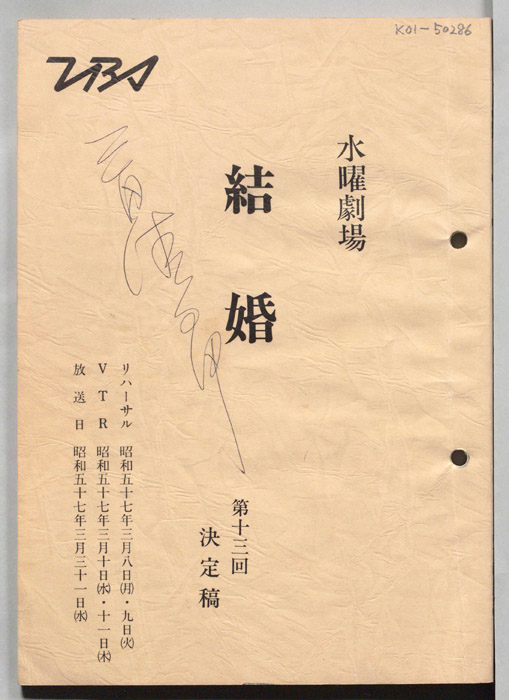 K01-50286
TBS
水曜劇場
結婚
第十三回
決定稿
リハーサル 昭和五十七年三月八日㈪・九日㈫
VTR 昭和五十七年三月十日㈬・十一日㈭
放送日 昭和五十七年三月三十一日㈬